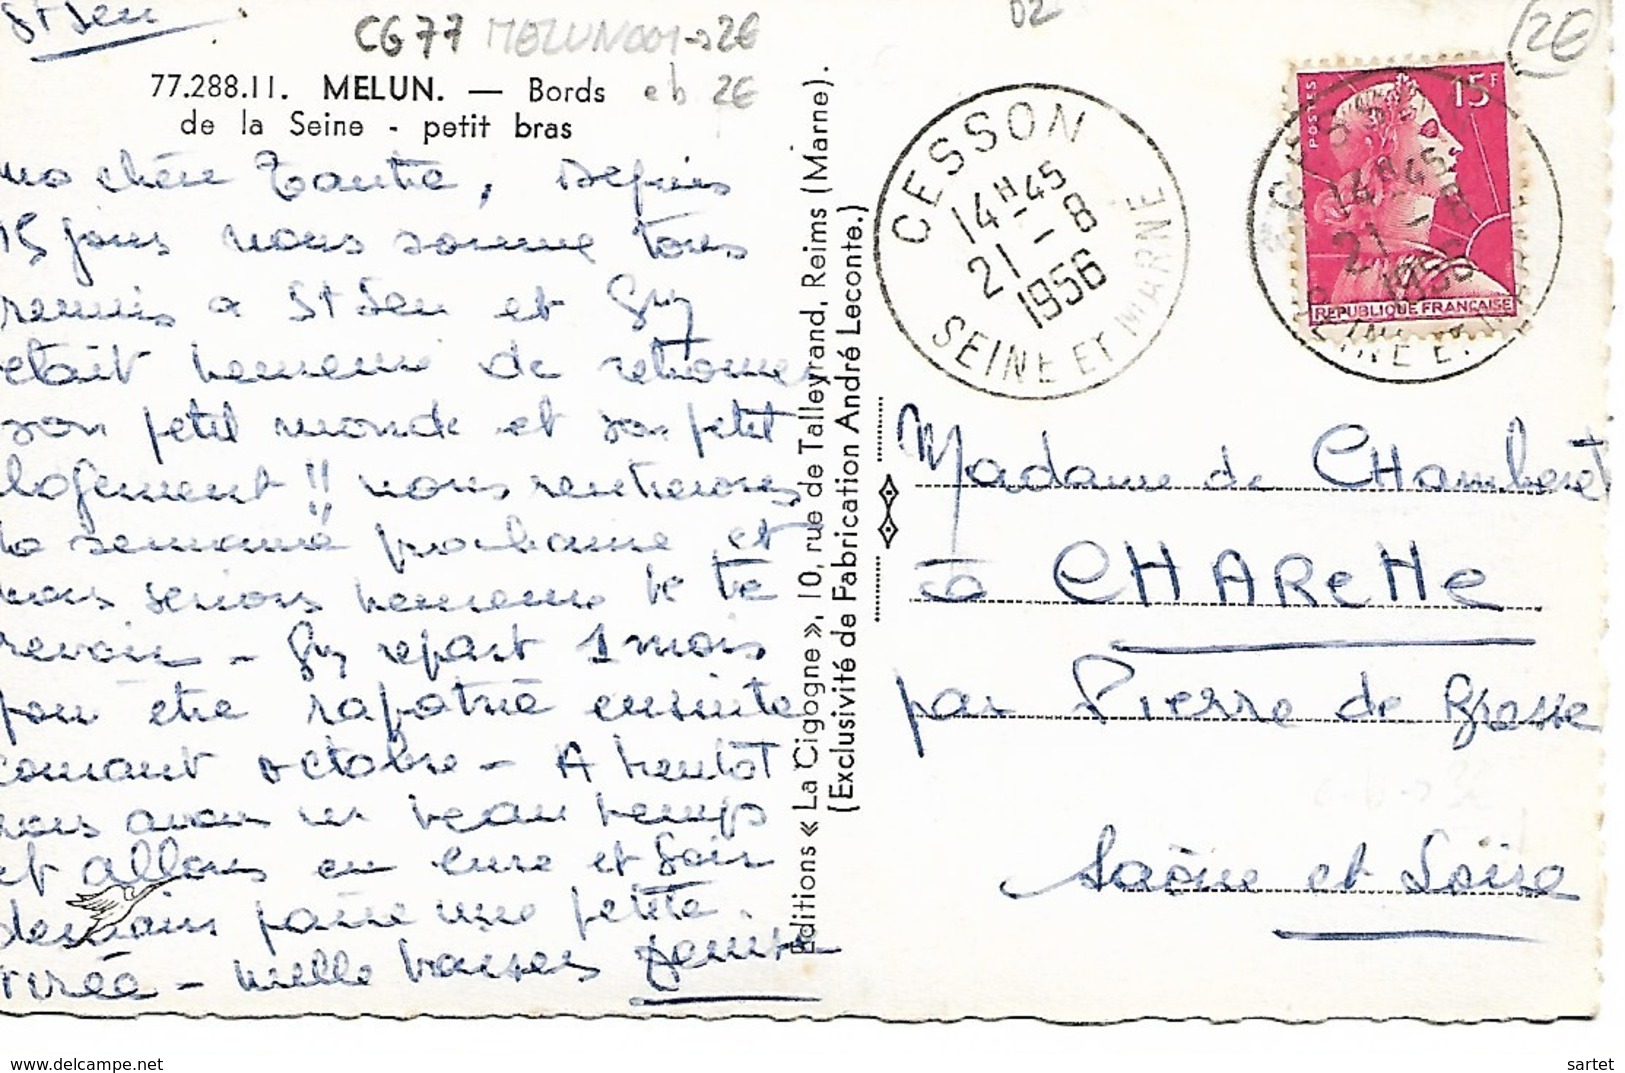 St Leu
CG 77 MELUN001 → 2€
02
2€
77.288.11. MELUN. — Bords
eb 2€
de la Seine - petit bras
ma chère Tante, Depuis
15 jours nous somme tous
reunis a St Leu et Guy
etait heureux de retrouver
son petit monde et son petit
logement !! nous rentrerons
la semaine prochaine et
nous serions heureux de te
revoir - Guy repart 1 mois
pour être rapatrié ensuite
courant octobre - A bientôt
nous avons un beau temps
et allons en
demain faire une petite
virée - mille baisers Denise
Editions « La Cigogne », 10, rue de Talleyrand, Reims (Marne).
(Exclusivité de Fabrication André Leconte.)
CESSON
14H45
21-8
1956
SEINE ET MARNE
POSTES
15F
REPUBLIQUE FRANÇAISE
14H45
21-8
1956
Madame de Chamberet
à CHARETTE
par Pierre de Bresse
Saône et Loire
sartet